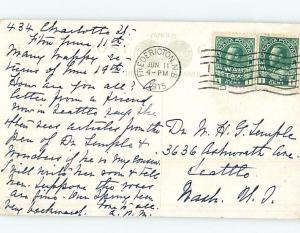 434 Charlotte St.
Mon June 11th
Many happy re-
turns of June 19th.
How are you all?
Letter from a friend
now in Seattle says she
often sees articles from the
pen of Dr. Temple &
wonders if he is my cousin.
Will write her soon & tell
her. Suppose the roses
are fine. Our Spring been
very backward.
FREDERICTON, N.B.
JUN 11
4-PM
1915
WAR TAX
Dr. W. H. G. Temple
3636 Ashworth Ave.
Seattle
Wash. U.S.